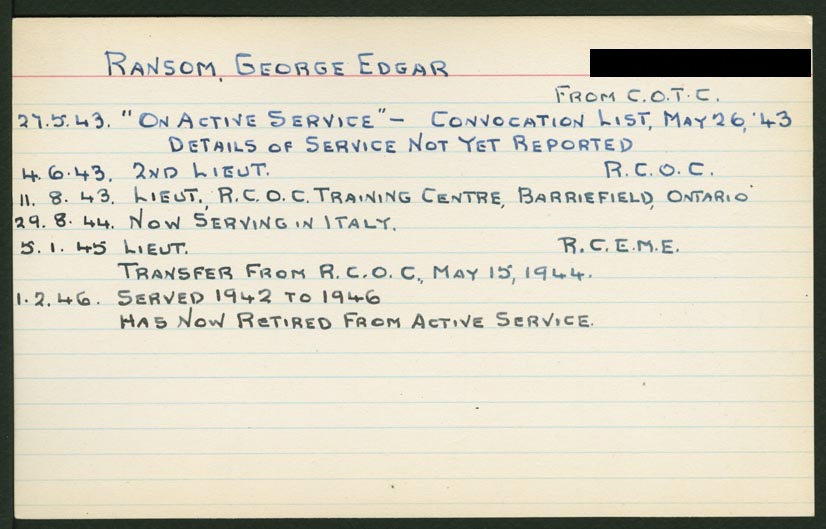 RANSOM, GEORGE EDGAR
FROM C.O.T.C.
27.5.43. "ON ACTIVE SERVICE" - CONVOCATION LIST, MAY 26, '43
DETAILS OF SERVICE NOT YET REPORTED
4.6.43. 2ND LIEUT. R.C.O.C.
11.8.43. LIEUT., R.C.O.C. TRAINING CENTRE, BARRIEFIELD, ONTARIO
29.8.44. NOW SERVING IN ITALY.
5.1.45 LIEUT. R.C.E.M.E.
TRANSFER FROM R.C.O.C., MAY 15, 1944.
1.2.46. SERVED 1942 TO 1946
HAS NOW RETIRED FROM ACTIVE SERVICE.